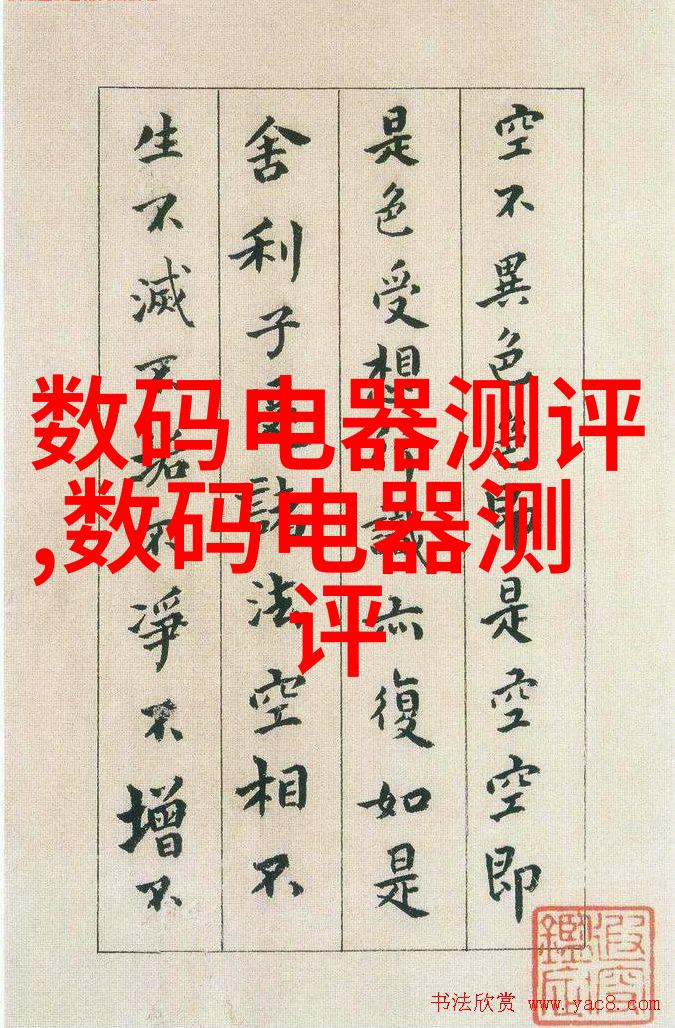 空不異色色即是空空即
是色受想行識亦復如是
舍利子是諸法空相不
生不滅不垢不淨不增不
数码电器测评
,数码电器测
评
书法欣赏 www.yac8.com